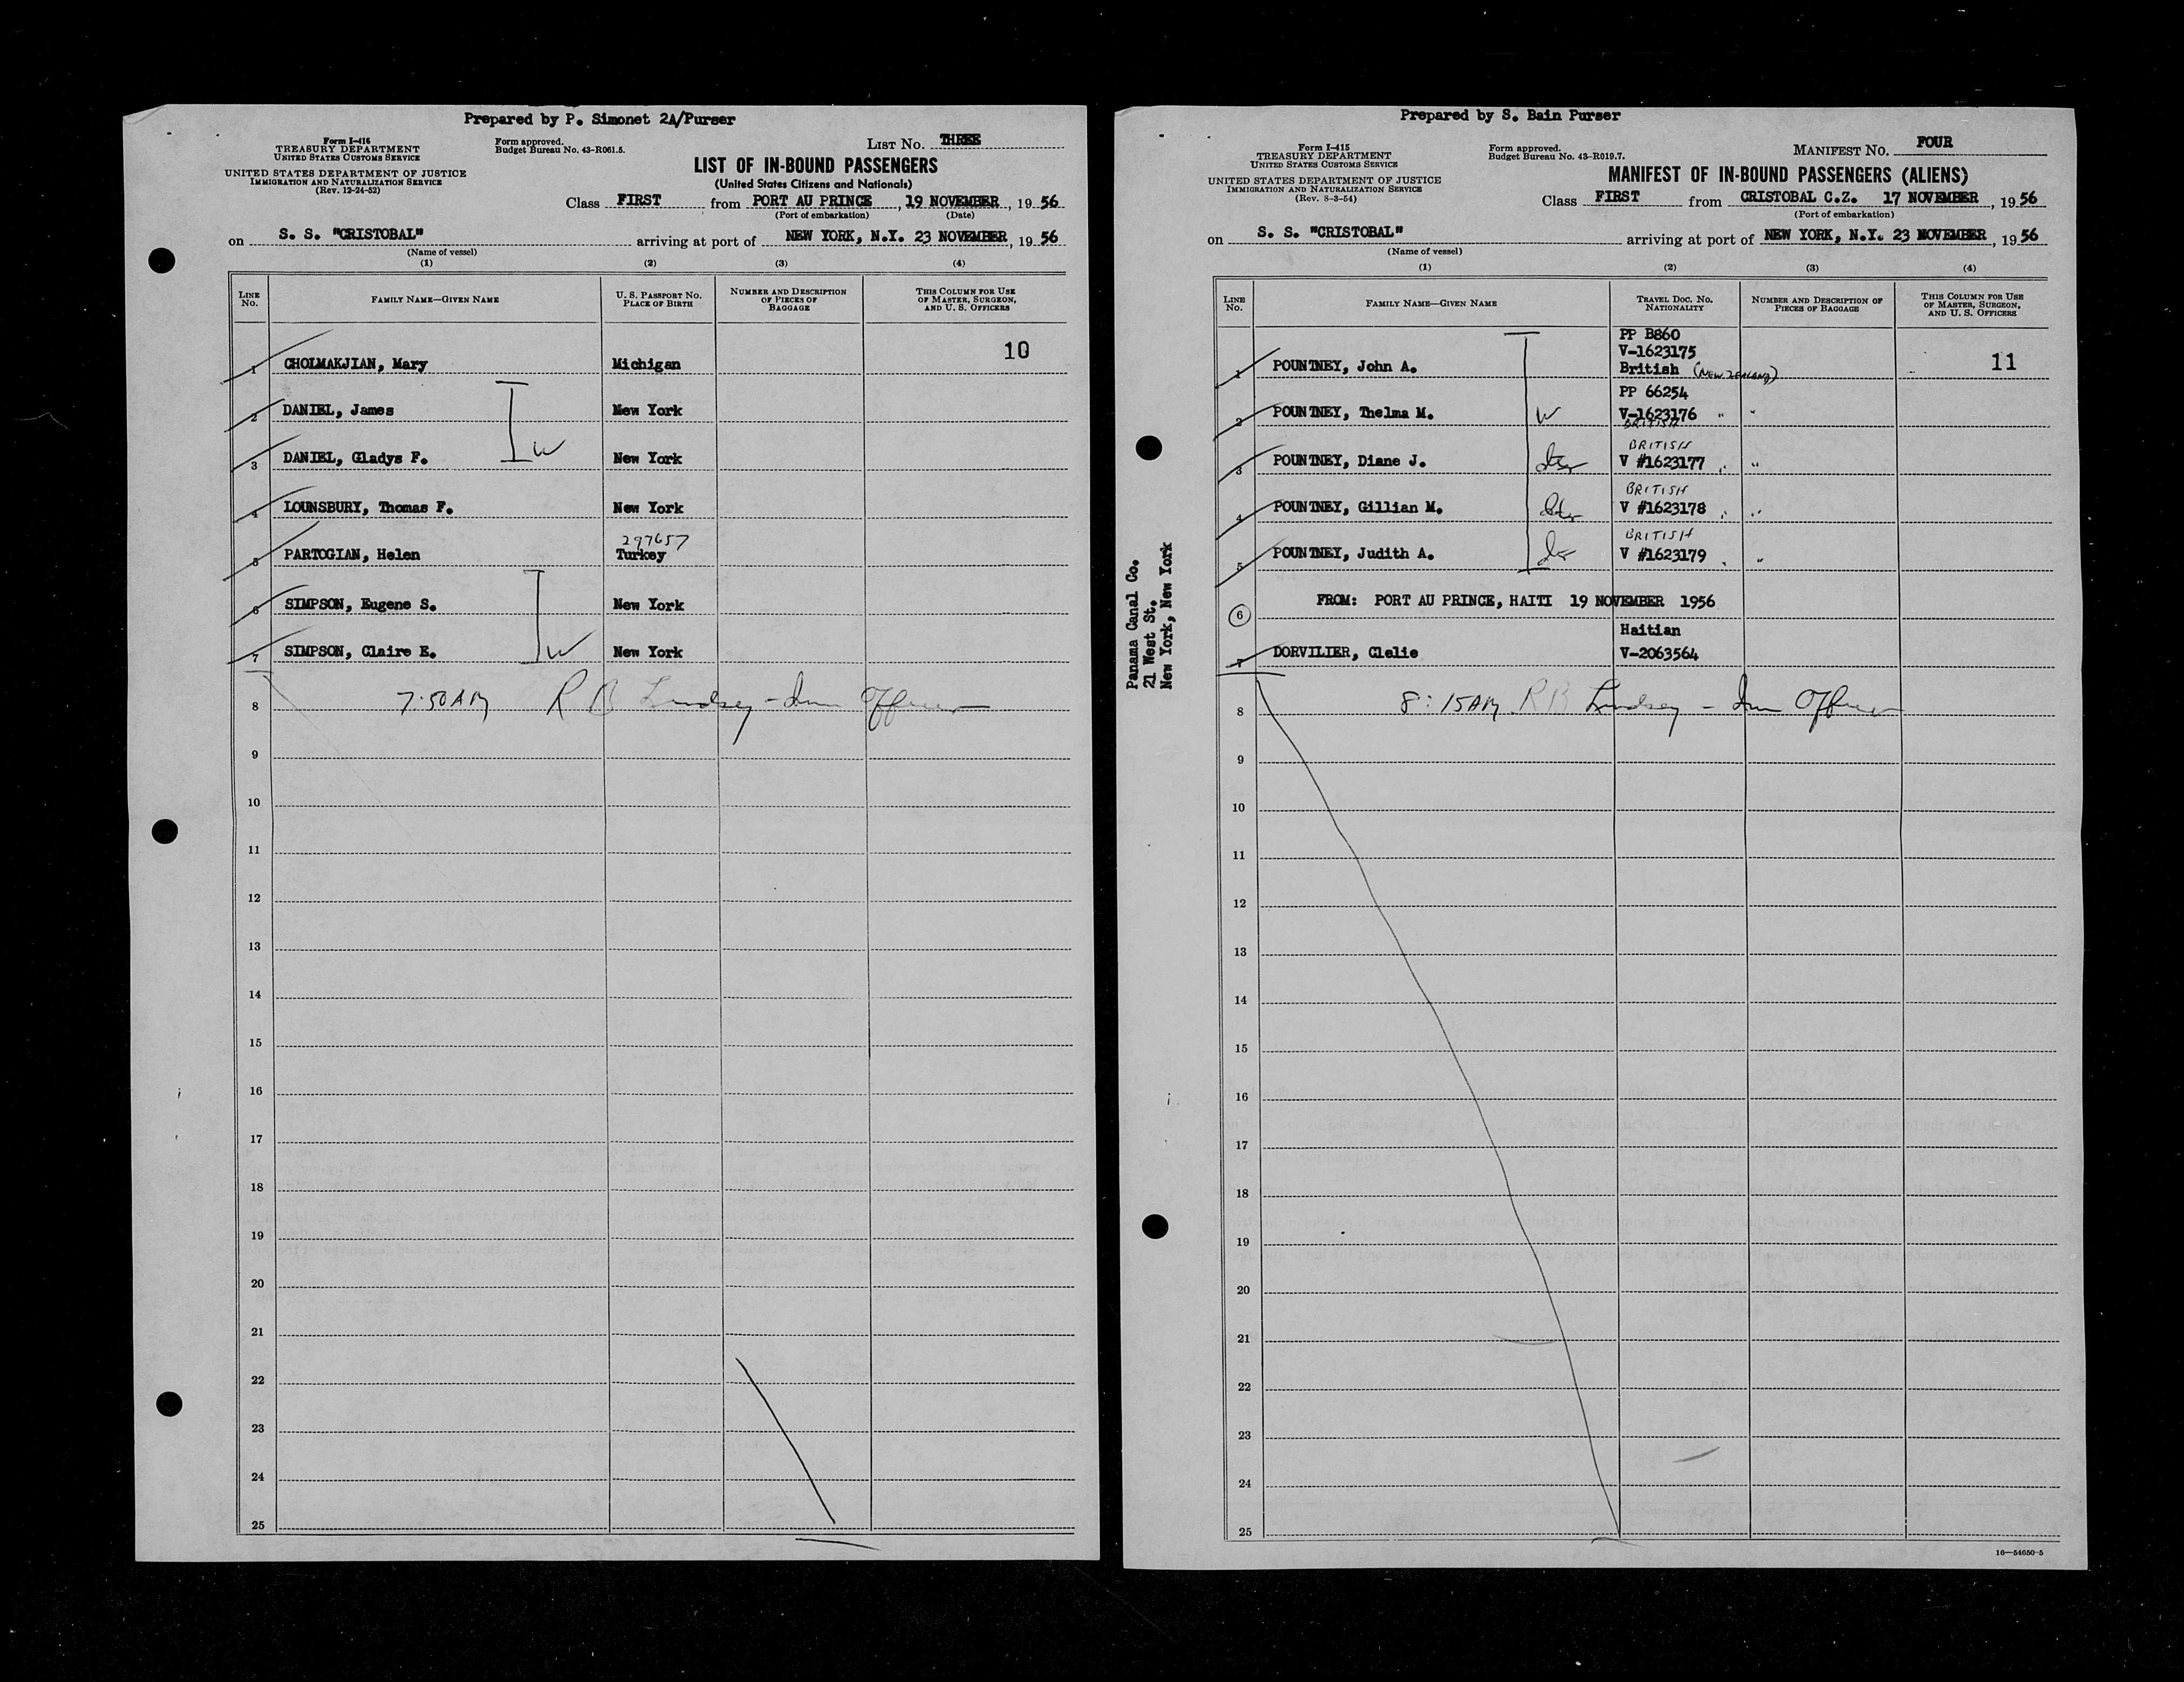 Prepared by P. Simonet 2A/Purser
Form I-416
TREASURY DEPARTMENT
UNITED STATES CUSTOMS SERVICE
UNITED STATES DEPARTMENT OF JUSTICE
IMMIGRATION AND NATURALIZATION SERVICE
(Rev. 12-24-52)
Form approved.
Budget Bureau No. 43-R061.5.
LIST No. THREE
LIST OF IN-BOUND PASSENGERS
(United States Citizens and Nationals)
Class FIRST from PORT AU PRINCE, 19 NOVEMBER, 1956
(Port of embarkation) (Date)
on S. S. "CRISTOBAL" arriving at port of NEW YORK, N.Y. 23 NOVEMBER, 1956
(Name of vessel)
(1) (2) (3) (4)
LINE No. FAMILY NAME—GIVEN NAME U. S. PASSPORT No. PLACE OF BIRTH NUMBER AND DESCRIPTION OF PIECES OF BAGGAGE THIS COLUMN FOR USE OF MASTER, SURGEON, AND U. S. OFFICERS
10
1 CHOLMAKJIAN, Mary Michigan
2 DANIEL, James New York
3 DANIEL, Gladys F. W New York
4 LOUNSBURY, Thomas F. New York
297657
5 PARTOGIAN, Helen Turkey
6 SIMPSON, Eugene S. New York
7 SIMPSON, Claire E. W New York
8 7:50 AM R B Lindsey - Imm Officer
9
10
11
12
13
14
15
16
17
18
19
20
21
22
23
24
25
Prepared by S. Bain Purser
Form I-415
TREASURY DEPARTMENT
UNITED STATES CUSTOMS SERVICE
UNITED STATES DEPARTMENT OF JUSTICE
IMMIGRATION AND NATURALIZATION SERVICE
(Rev. 8-3-54)
Form approved.
Budget Bureau No. 43-R019.7.
MANIFEST No. FOUR
MANIFEST OF IN-BOUND PASSENGERS (ALIENS)
Class FIRST from CRISTOBAL C.Z. 17 NOVEMBER, 1956
(Port of embarkation)
on S. S. "CRISTOBAL" arriving at port of NEW YORK, N.Y. 23 NOVEMBER, 1956
(Name of vessel)
(1) (2) (3) (4)
LINE No. FAMILY NAME—GIVEN NAME TRAVEL DOC. No. NATIONALITY NUMBER AND DESCRIPTION OF PIECES OF BAGGAGE THIS COLUMN FOR USE OF MASTER, SURGEON, AND U. S. OFFICERS
PP B860
V-1623175
1 POUNTNEY, John A. British (NEW ZEALAND) 11
PP 66254
2 POUNTNEY, Thelma M. W V-1623176 " "
BRITISH
BRITISH
3 POUNTNEY, Diane J. dtr V #1623177 "
BRITISH
4 POUNTNEY, Gillian M. dtr V #1623178 "
BRITISH
5 POUNTNEY, Judith A. dtr V #1623179 "
6 FROM: PORT AU PRINCE, HAITI 19 NOVEMBER 1956
Haitian
7 DORVILIER, Clelie V-2063564
8 8:15 AM R B Lindsey - Imm Officer
9
10
11
12
13
14
15
16
17
18
19
20
21
22
23
24
25
16—54650-5
Panama Canal Co.
21 West St.
New York, New York